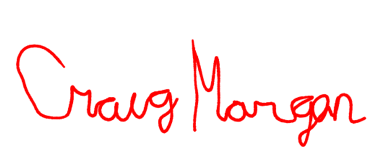 Craig Morgan